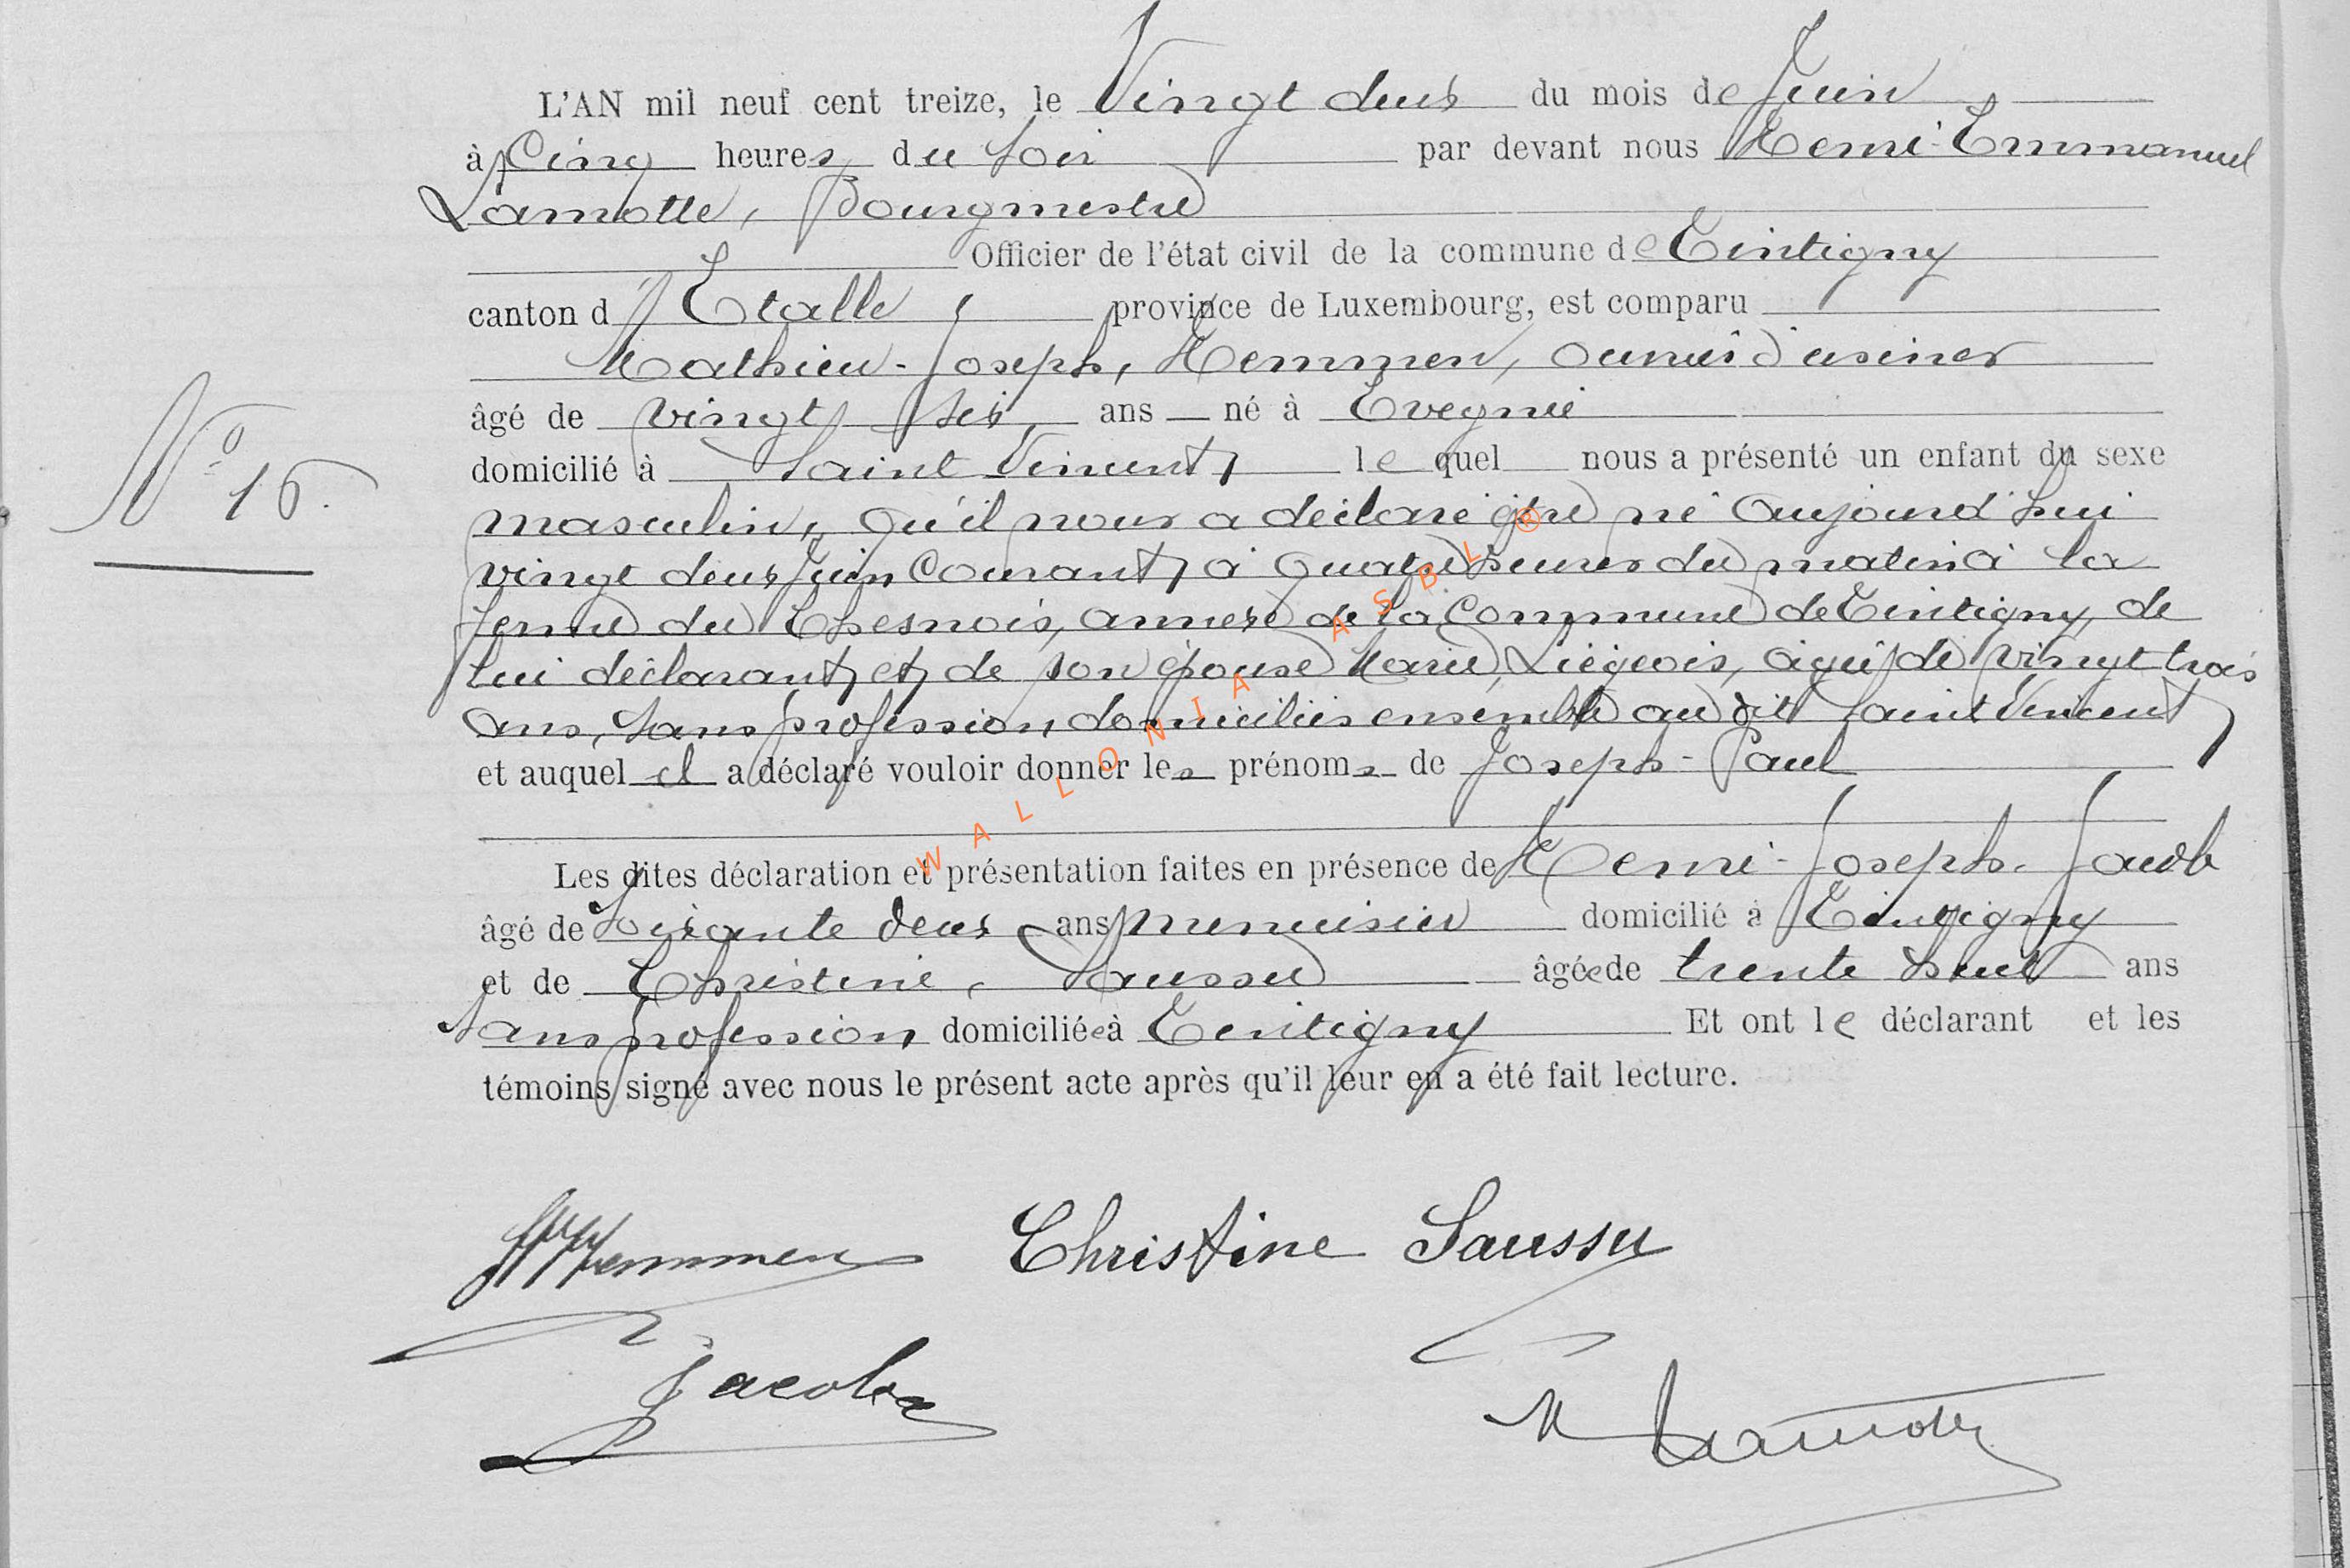 L'AN mil neuf cent treize, le Vingt deux du mois de Juin
à Cinq heures du soir par devant nous Henri-Emmanuel
Lamotte, Bourgmestre
Officier de l'état civil de la commune de Tintigny
canton d'Etalle, province de Luxembourg, est comparu
Mathieu-Joseph, Hemmen, ouvrier d'usines
âgé de vingt six ans né à Evegnié
N° 16. domicilié à Saint Vincent, le quel nous a présenté un enfant du sexe
masculin, qu'il nous a déclaré être né aujourd'hui
vingt deux Juin Courant, à quatre heures du matin à la
ferme du Chesnois, annexe de la Commune de Tintigny, de
lui déclarant, et de son épouse Marie, Liégeois, agée de vingt trois
ans, sans profession, domiciliés ensemble au dit Saint Vincent,
et auquel il a déclaré vouloir donner les prénoms de Joseph-Paul
Les dites déclaration et présentation faites en présence de Henri-Joseph-Jacob
âgé de soixante deux ans, menuisier domicilié à Tintigny
et de Christine, Saussu âgée de trente huit ans
sans profession domiciliée à Tintigny Et ont le déclarant et les
témoins signé avec nous le présent acte après qu'il leur en a été fait lecture.
Hemmen Christine Saussu
Jacob
H Lamotte
WALLONIA ASBL ®